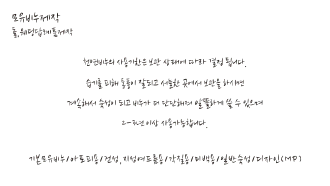 모유비누제작
돌,웨딩답례품제작
천연비누의 사용기한은 보관 상태에 따라 결정 됩니다.
습기를 피해 통풍이 잘되고 서늘한 곳에서 보관을 하시면
계속해서 숙성이 되고 비누가 더 단단해져 알뜰하게 쓸 수 있으며
2-3년 이상 사용가능합니다.
기본모유비누/아토피용/건성,지성여드름용/각질용/미백용/일반숙성/디자인(MP)